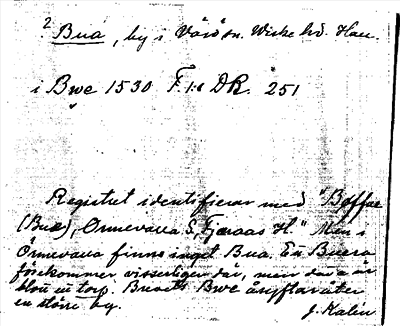 ? Bua, by i Värö sn. Viske hd. Hall.
i Bwe 1530 F 1:c DR. 251
Registret identifierar med "Boffue
(Bua), Ormevalla S, Fjæraas H." Men i
Örmevalla finns inget Bua. En Buera
förekommer visserligen där, men detta är
blott ett torp. Brevets Bwe åsyftar åter
en större by.
J. Kalén